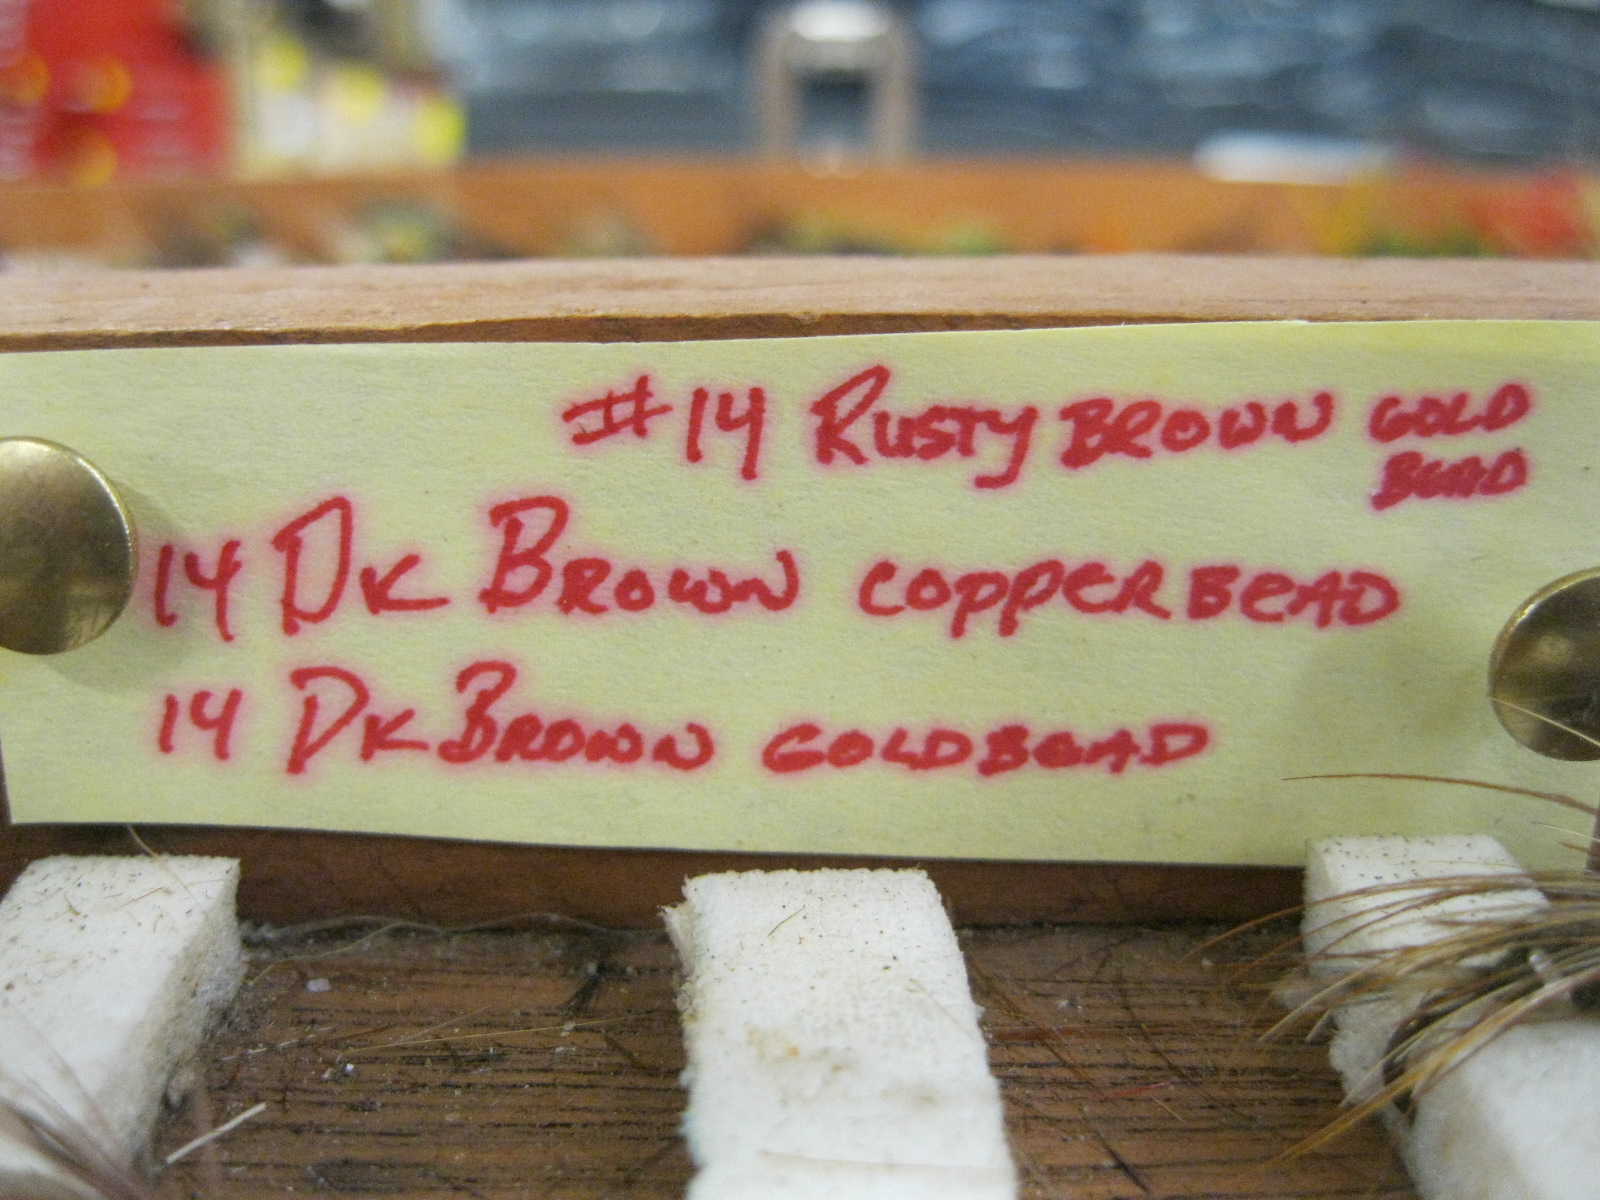 #14 RUSTY BROWN GOLD
BEAD
14 DK BROWN COPPER BEAD
14 DK BROWN GOLD BEAD